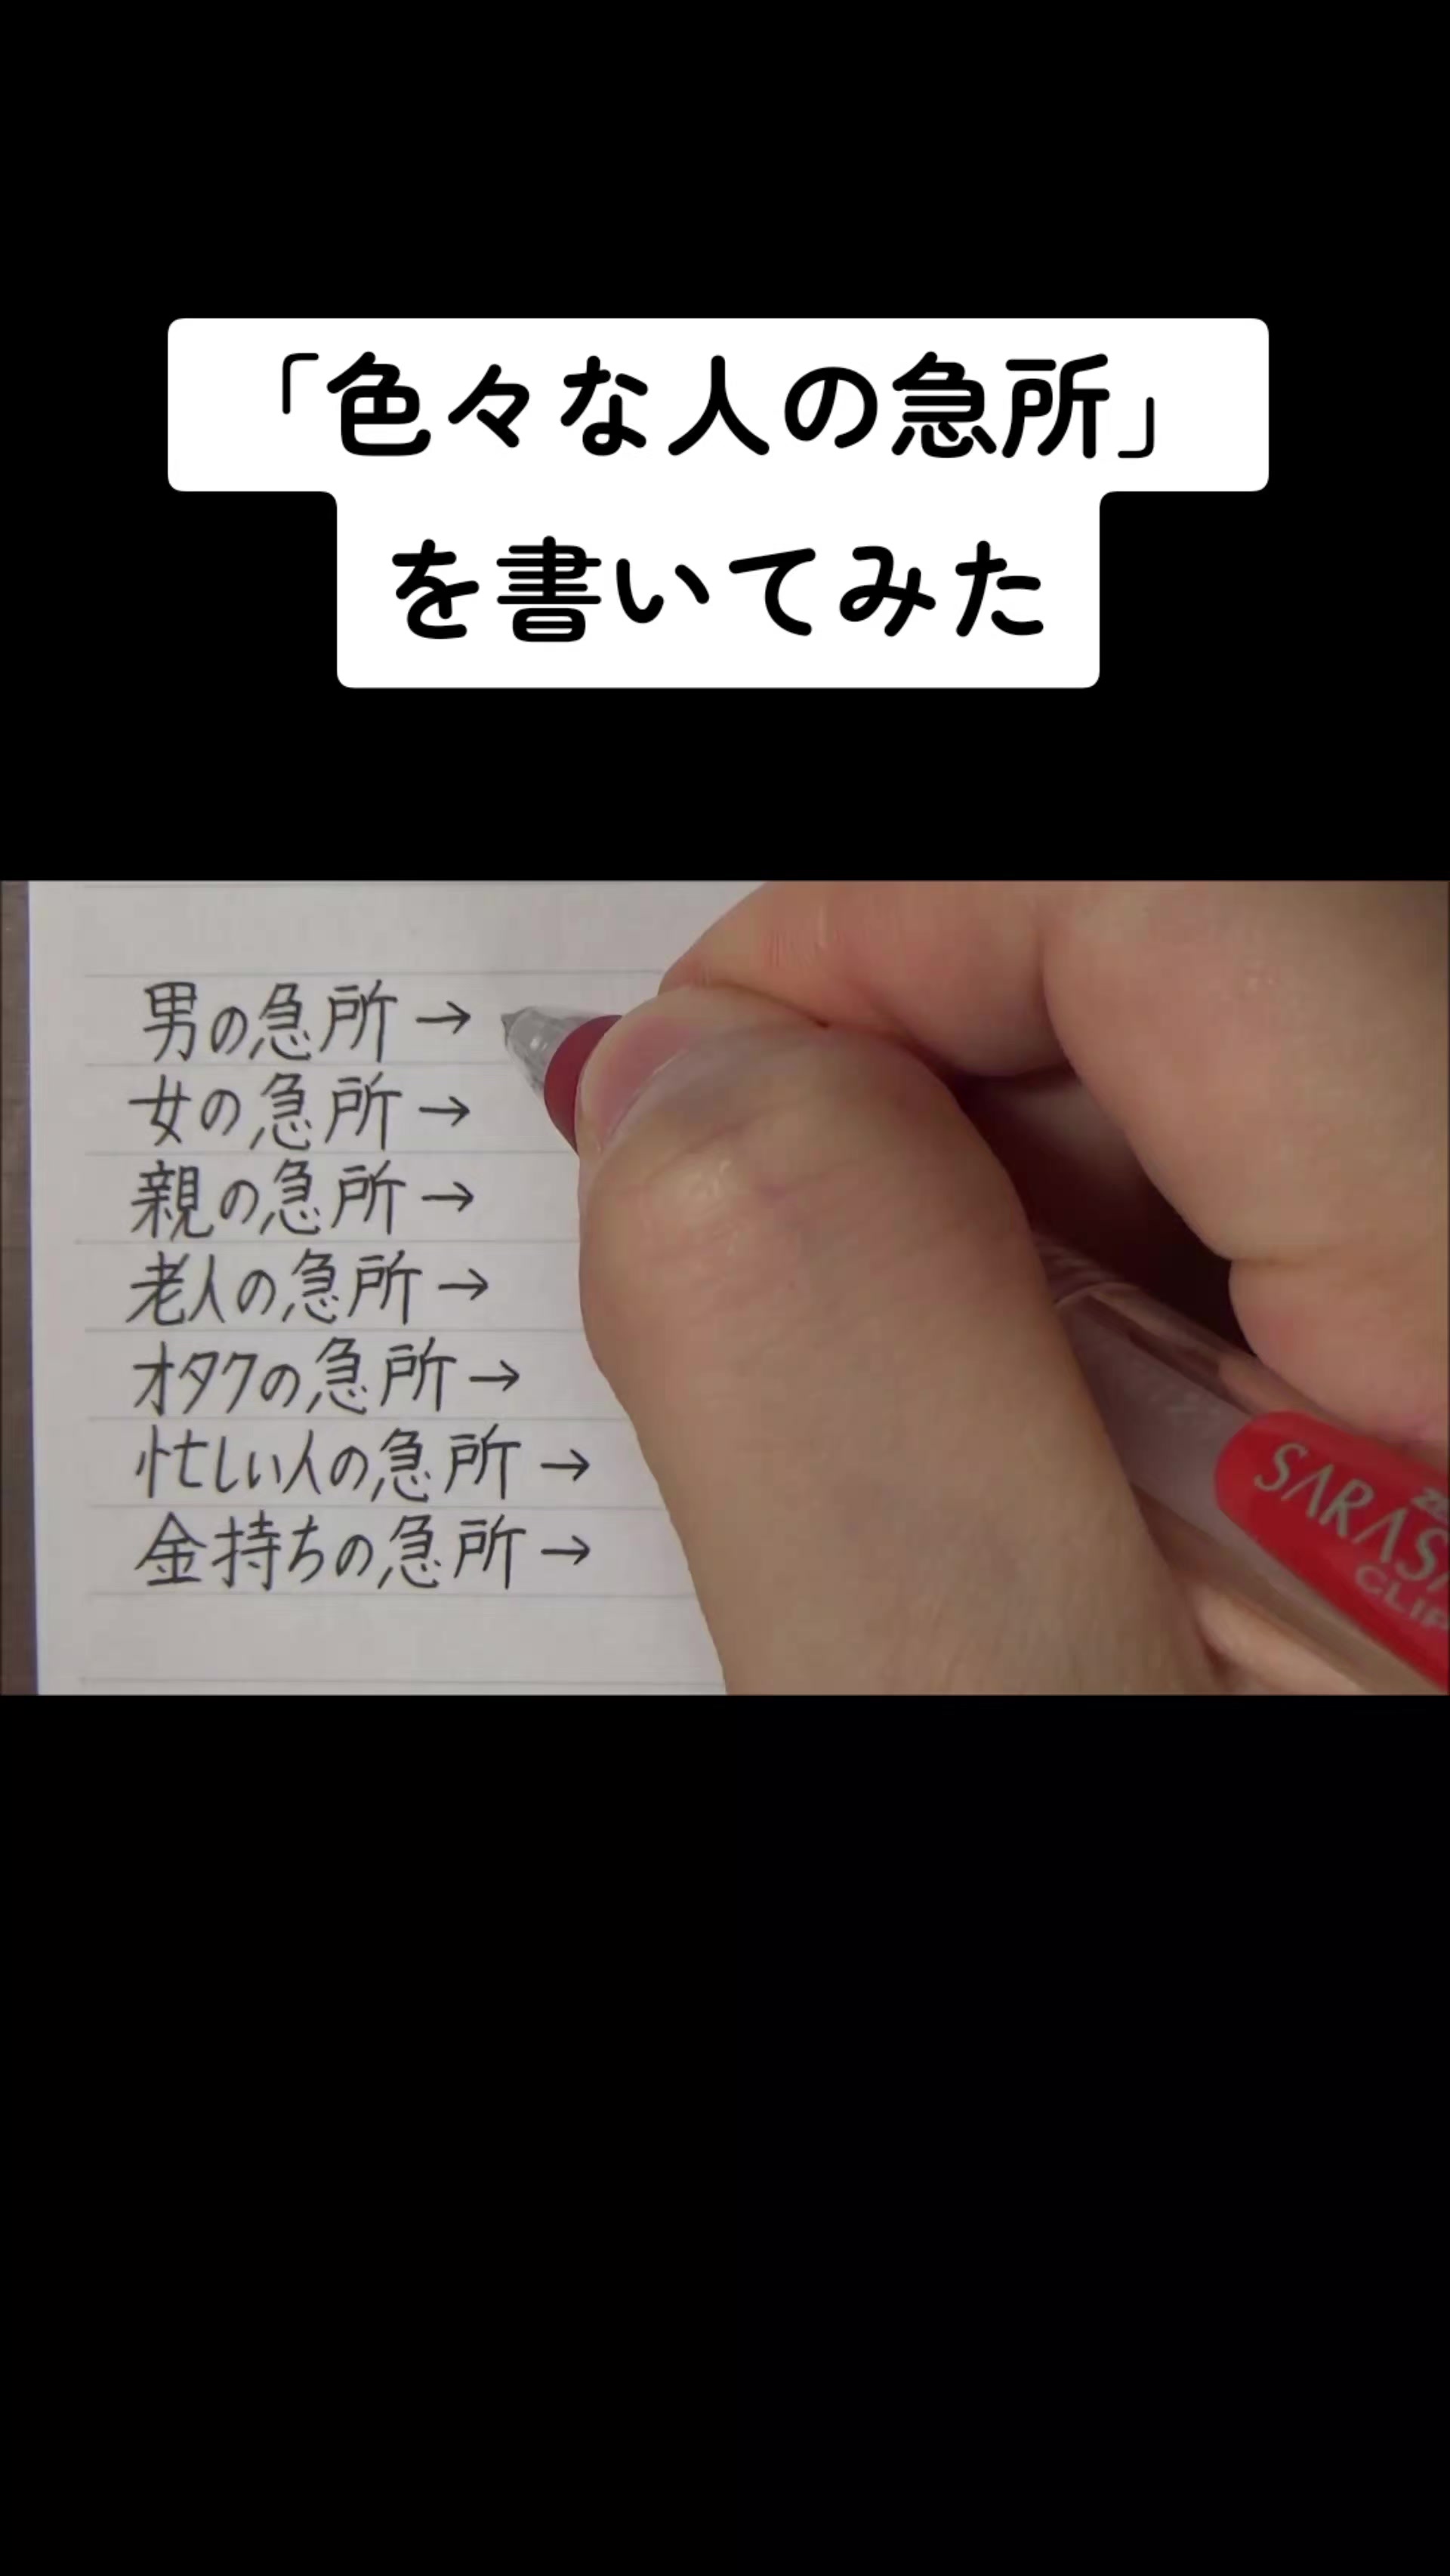 「色々な人の急所」
を書いてみた
男の急所→
女の急所→
親の急所→
老人の急所→
オタクの急所→
忙しい人の急所→
金持ちの急所→
SARAS
CLIP